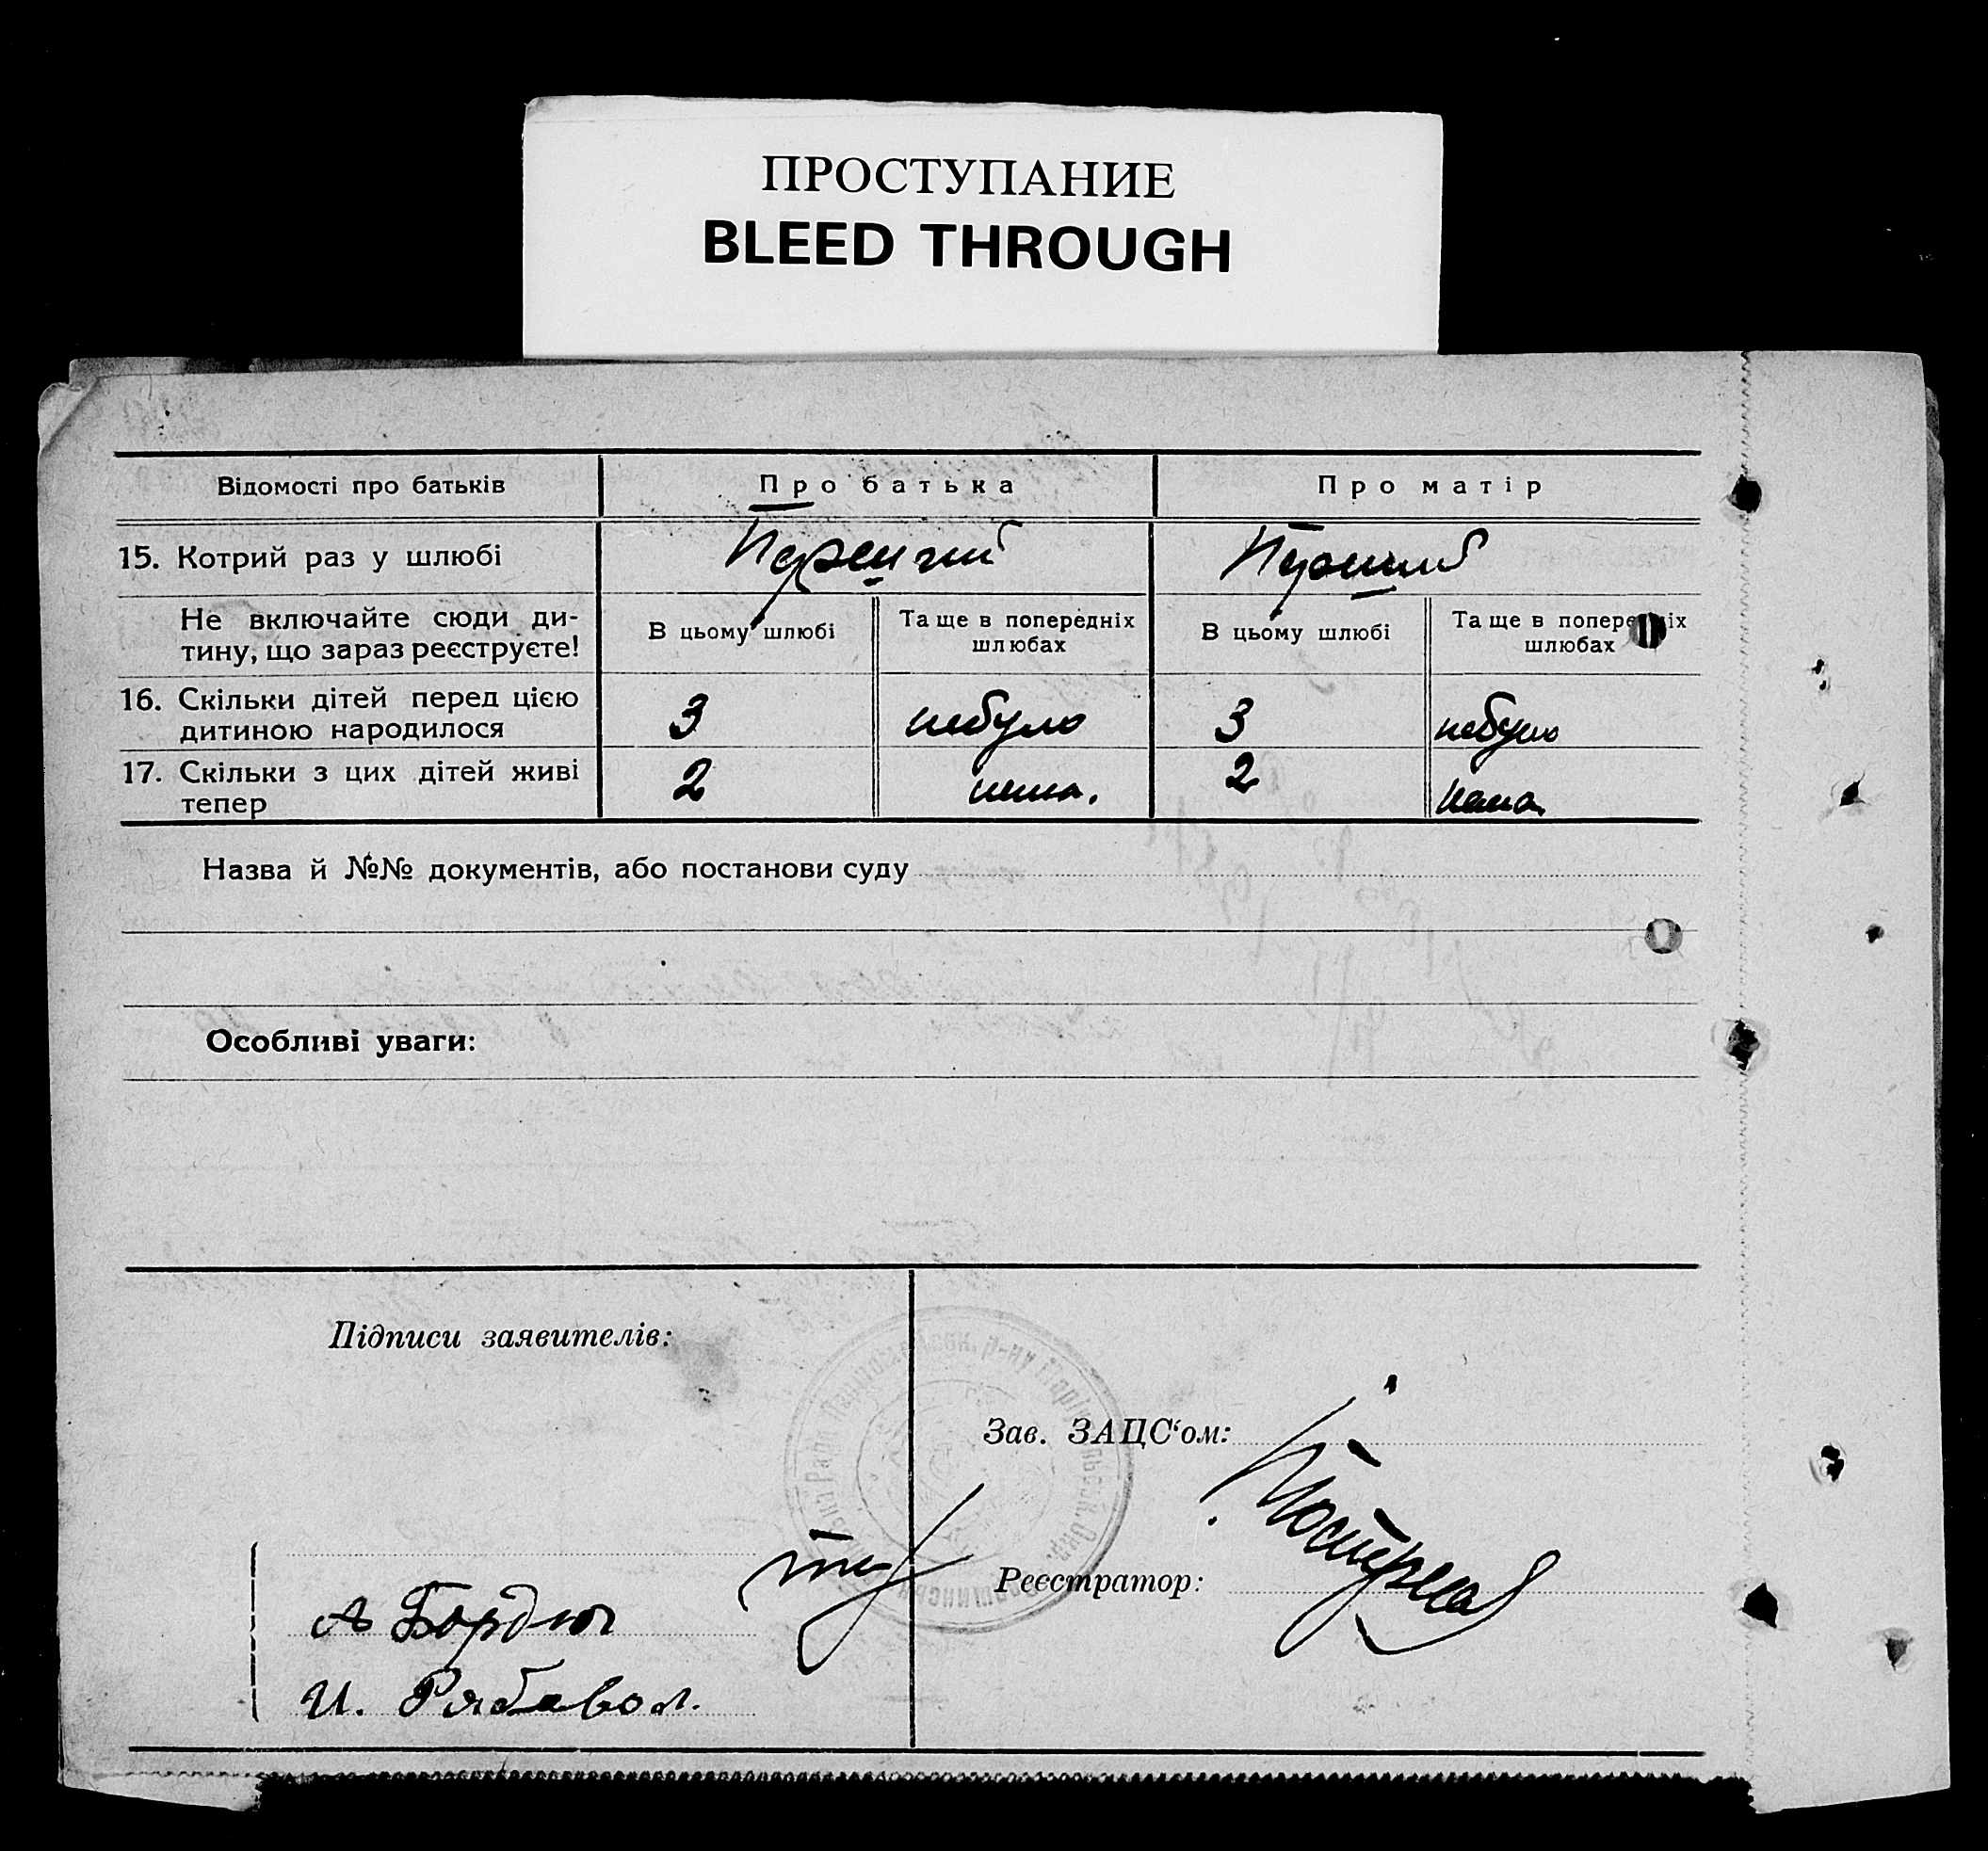 ПРОСТУПАНИЕ
BLEED THROUGH
Відомості про батьків
Про батька
Про матір
15. Котрий раз у шлюбі
Перший
Перший
Не включайте сюди ди-
тину, що зараз реєструєте!
В цьому шлюбі
Та ще в попередніх
шлюбах
В цьому шлюбі
Та ще в попередніх
шлюбах
16. Скільки дітей перед цією
дитиною народилося
3
небуло
3
небуло
17. Скільки з цих дітей живі
тепер
2
нема.
2
нема.
Назва й №№ документів, або постанови суду
Особливі уваги:
Підписи заявителів:
Зав. ЗАЦС‘ом:
Реєстратор:
А Бордюг
И. Рябовол.